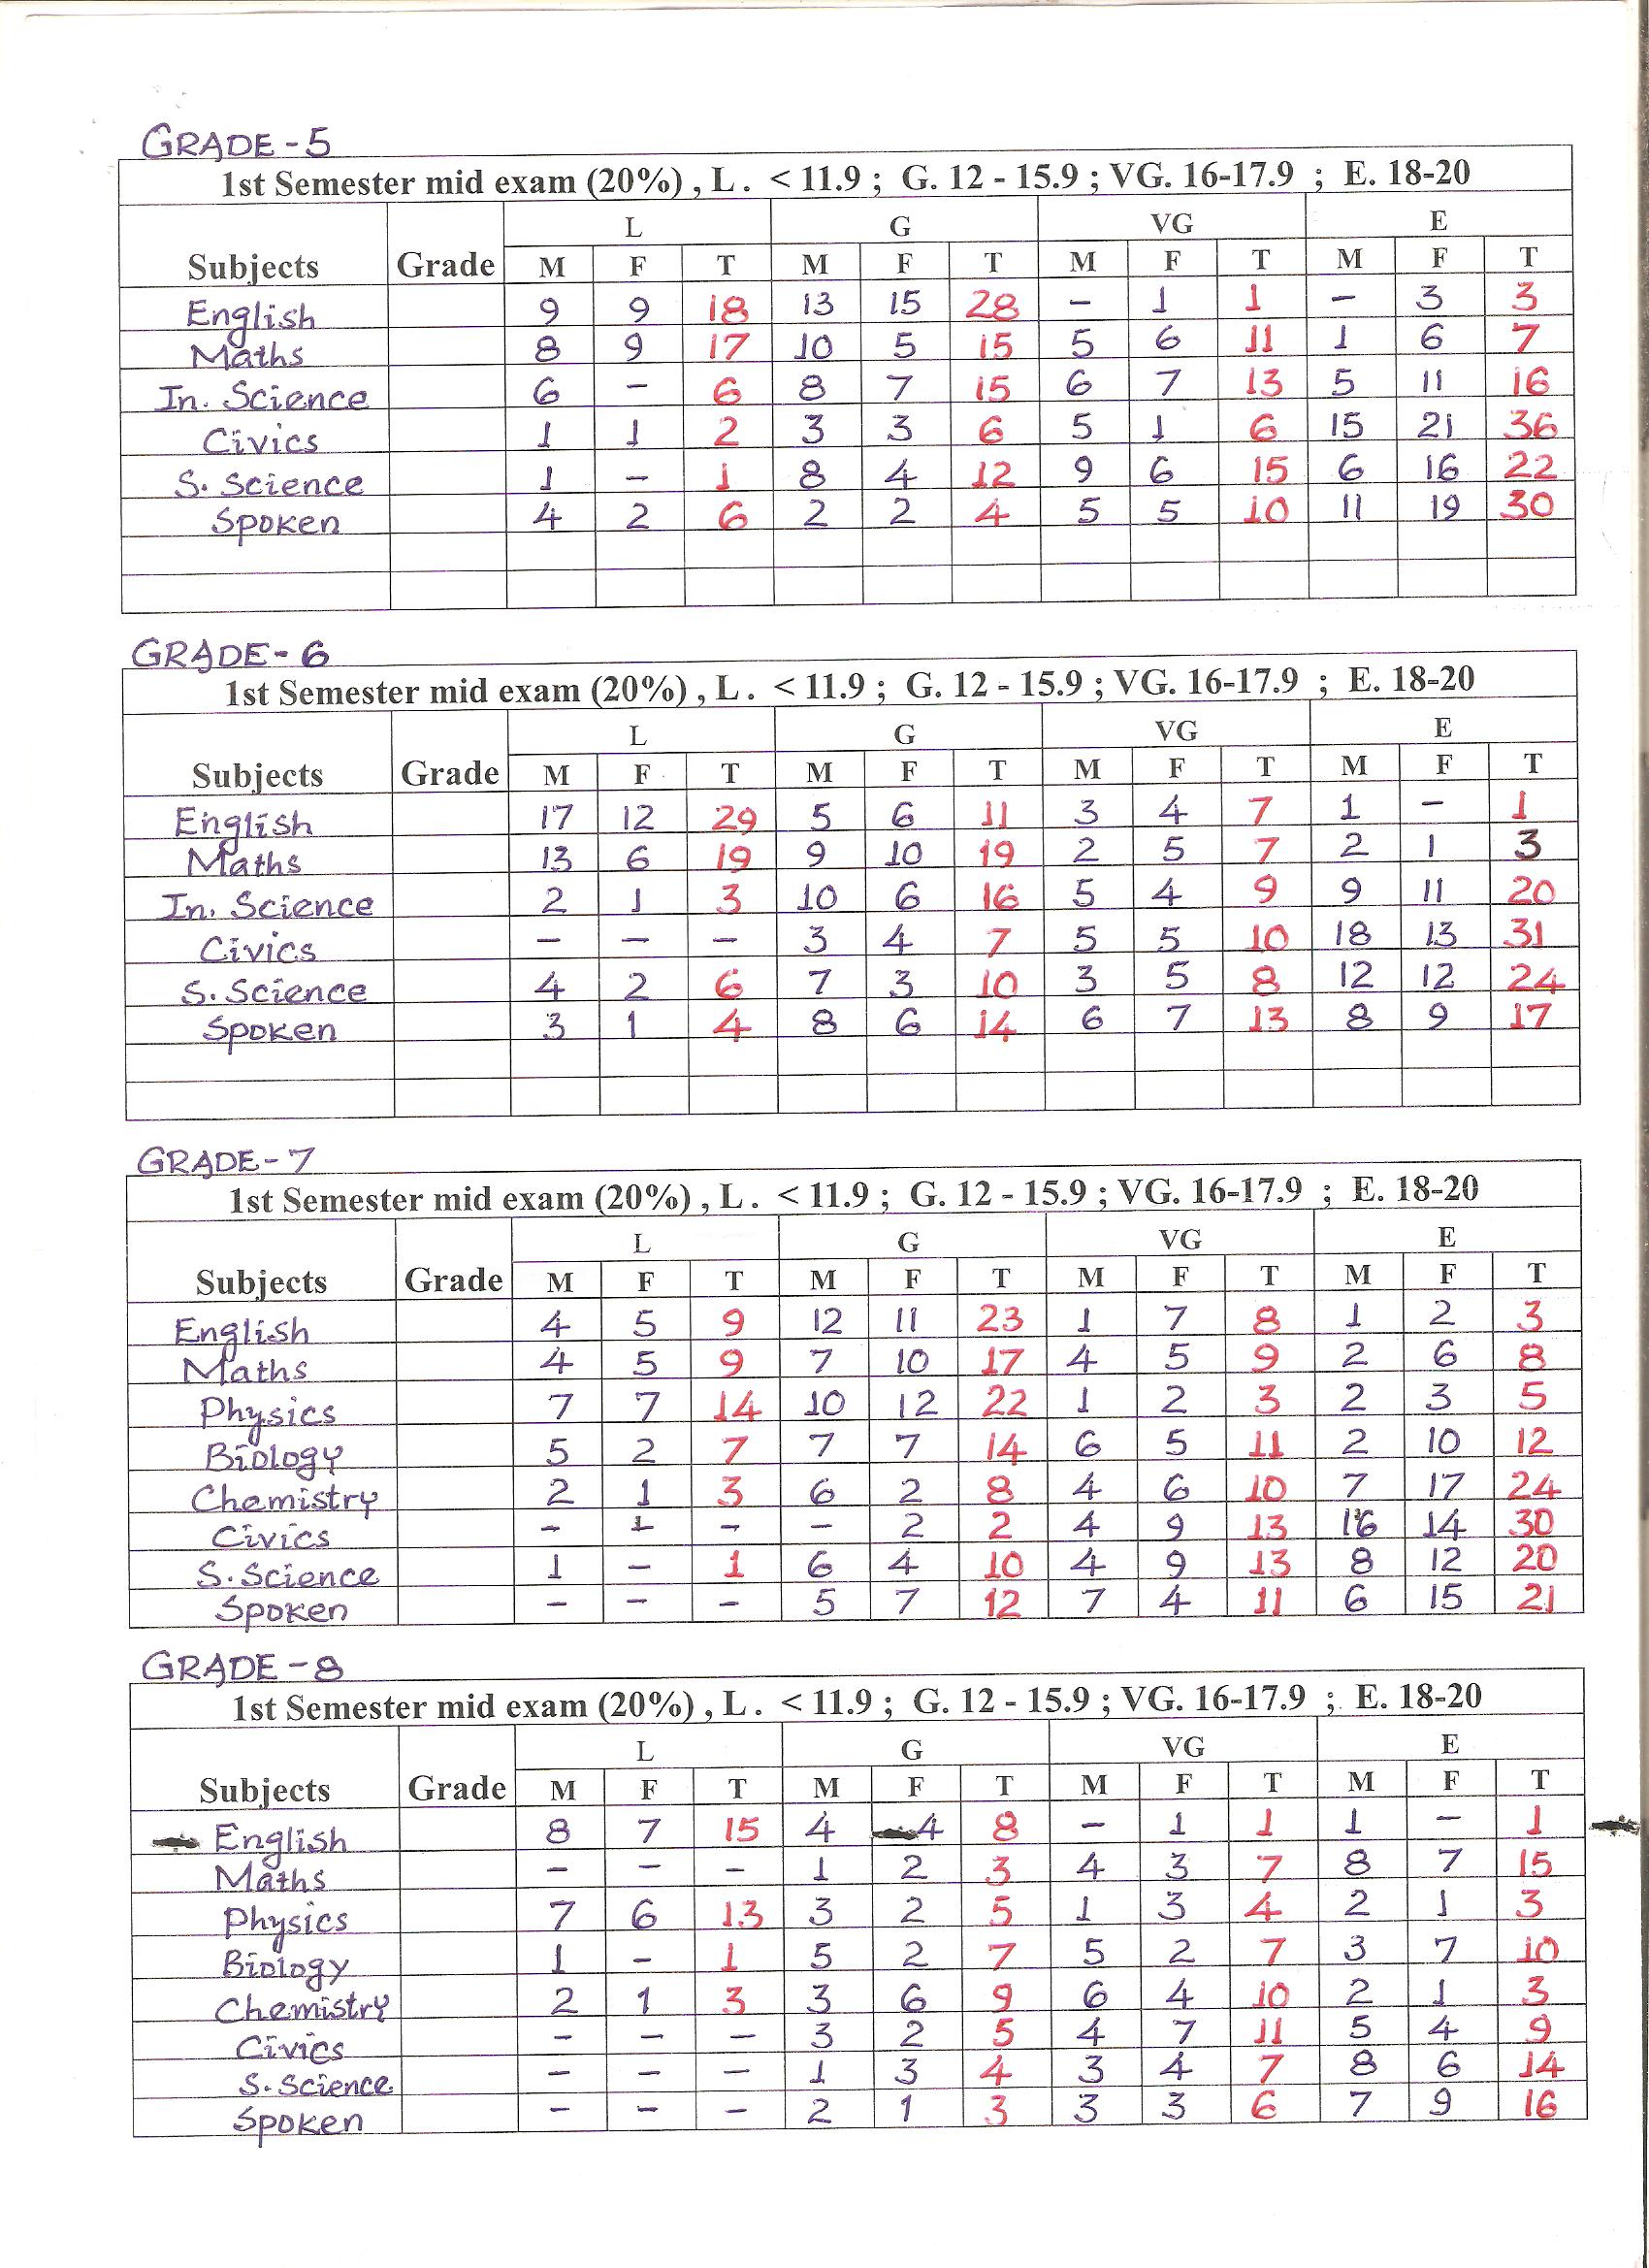 GRADE - 5
1st Semester mid exam (20%) , L . < 11.9 ; G. 12 - 15.9 ; VG. 16-17.9 ; E. 18-20
L G VG E
Subjects Grade M F T M F T M F T M F T
English 9 9 18 13 15 28 - 1 1 - 3 3
Maths 8 9 17 10 5 15 5 6 11 1 6 7
In. Science 6 - 6 8 7 15 6 7 13 5 11 16
Civics 1 1 2 3 3 6 5 1 6 15 21 36
S. Science 1 - 1 8 4 12 9 6 15 6 16 22
Spoken 4 2 6 2 2 4 5 5 10 11 19 30
GRADE - 6
1st Semester mid exam (20%) , L . < 11.9 ; G. 12 - 15.9 ; VG. 16-17.9 ; E. 18-20
L G VG E
Subjects Grade M F T M F T M F T M F T
English 17 12 29 5 6 11 3 4 7 1 - 1
Maths 13 6 19 9 10 19 2 5 7 2 1 3
In. Science 2 1 3 10 6 16 5 4 9 9 11 20
Civics - - - 3 4 7 5 5 10 18 13 31
S. Science 4 2 6 7 3 10 3 5 8 12 12 24
Spoken 3 1 4 8 6 14 6 7 13 8 9 17
GRADE - 7
1st Semester mid exam (20%) , L . < 11.9 ; G. 12 - 15.9 ; VG. 16-17.9 ; E. 18-20
L G VG E
Subjects Grade M F T M F T M F T M F T
English 4 5 9 12 11 23 1 7 8 1 2 3
Maths 4 5 9 7 10 17 4 5 9 2 6 8
Physics 7 7 14 10 12 22 1 2 3 2 3 5
Biology 5 2 7 7 7 14 6 5 11 2 10 12
Chemistry 2 1 3 6 2 8 4 6 10 7 17 24
Civics - - - - 2 2 4 9 13 16 14 30
S. Science 1 - 1 6 4 10 4 9 13 8 12 20
Spoken - - - 5 7 12 7 4 11 6 15 21
GRADE - 8
1st Semester mid exam (20%) , L . < 11.9 ; G. 12 - 15.9 ; VG. 16-17.9 ; E. 18-20
L G VG E
Subjects Grade M F T M F T M F T M F T
English 8 7 15 4 4 8 - 1 1 1 - 1
Maths - - - 1 2 3 4 3 7 8 7 15
Physics 7 6 13 3 2 5 1 3 4 2 1 3
Biology 1 - 1 5 2 7 5 2 7 3 7 10
Chemistry 2 1 3 3 6 9 6 4 10 2 1 3
Civics - - - 3 2 5 4 7 11 5 4 9
S. Science - - - 1 3 4 3 4 7 8 6 14
Spoken - - - 2 1 3 3 3 6 7 9 16